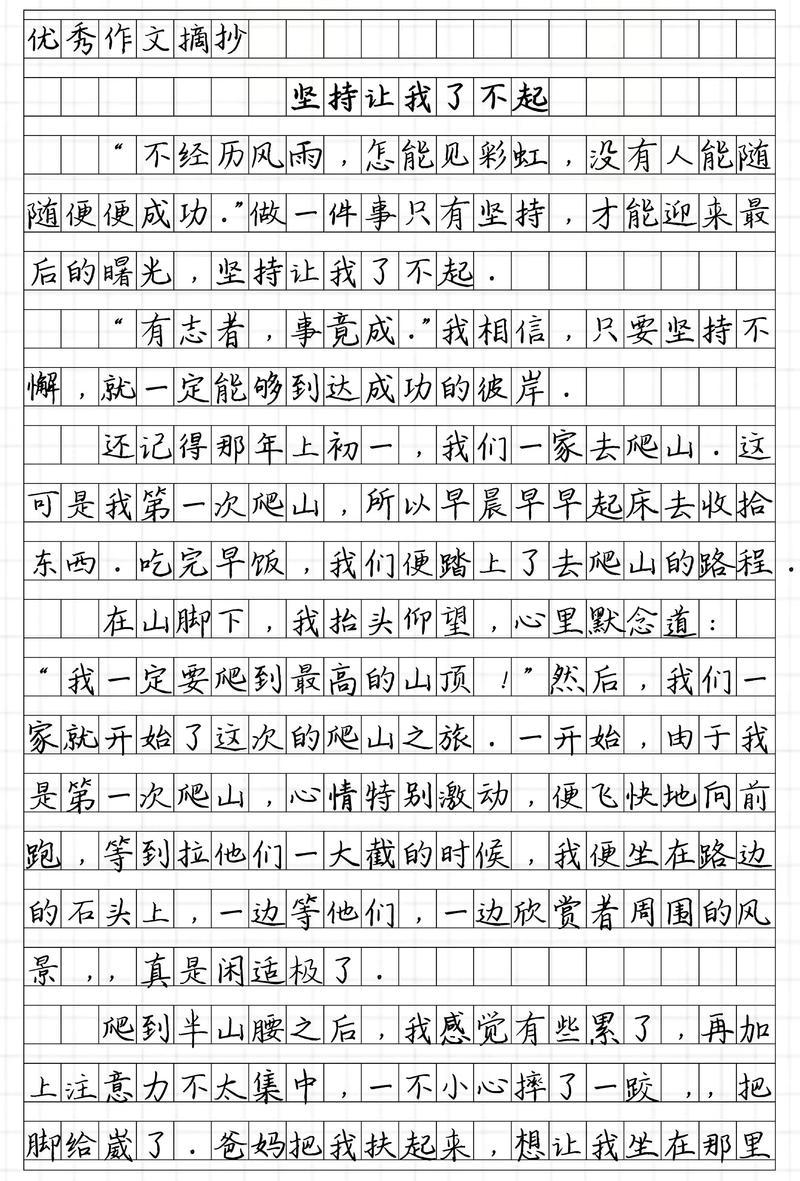 优秀作文摘抄
坚持让我了不起
“不经历风雨,怎能见彩虹,没有人能随
随便便成功.”做一件事只有坚持,才能迎来最
后的曙光,坚持让我了不起.
“有志者,事竟成.”我相信,只要坚持不
懈,就一定能够到达成功的彼岸.
还记得那年上初一,我们一家去爬山.这
可是我第一次爬山,所以早晨早早起床去收拾
东西.吃完早饭,我们便踏上了去爬山的路程.
在山脚下,我抬头仰望,心里默念道:
“我一定要爬到最高的山顶!”然后,我们一
家就开始了这次的爬山之旅.一开始,由于我
是第一次爬山,心情特别激动,便飞快地向前
跑,等到拉他们一大截的时候,我便坐在路边
的石头上,一边等他们,一边欣赏着周围的风
景,,真是闲适极了.
爬到半山腰之后,我感觉有些累了,再加
上注意力不太集中,一不小心摔了一跤,,把
脚给崴了.爸妈把我扶起来,想让我坐在那里